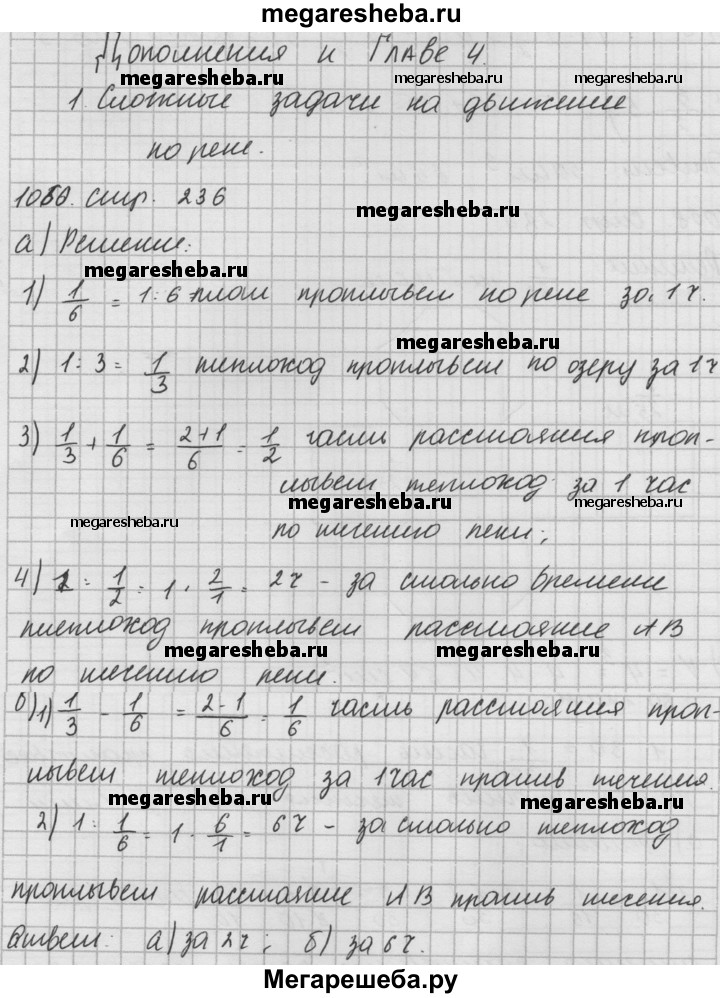 megaresheba.ru
Дополнения к Главе 4.
megaresheba.ru megaresheba.ru megaresheba.ru
1. Сложные задачи на движение
по реке.
1080. стр. 236
megaresheba.ru
а) Решение:
megaresheba.ru
1) 1/6 = 1:6 плот проплывет по реке за 1 ч.
megaresheba.ru
2) 1:3 = 1/3 теплоход проплывет по озеру за 1 ч
3) 1/3 + 1/6 = 2+1/6 = 1/2 часть расстояния проп-
лывет теплоход за 1 час
megaresheba.ru megaresheba.ru megaresheba.ru
по течению реки;
4) 1 : 1/2 = 1 · 2/1 = 2 ч - за столько времени
теплоход проплывет расстояние АВ
megaresheba.ru megaresheba.ru
по течению реки.
б) 1) 1/3 - 1/6 = 2-1/6 = 1/6 часть расстояния проп-
лывет теплоход за 1 час против течения.
megaresheba.ru megaresheba.ru
2) 1 : 1/6 = 1 · 6/1 = 6 ч - за столько теплоход
проплывет расстояние АВ против течения.
Ответ: а) за 2 ч; б) за 6 ч.
Мегарешеба.ру